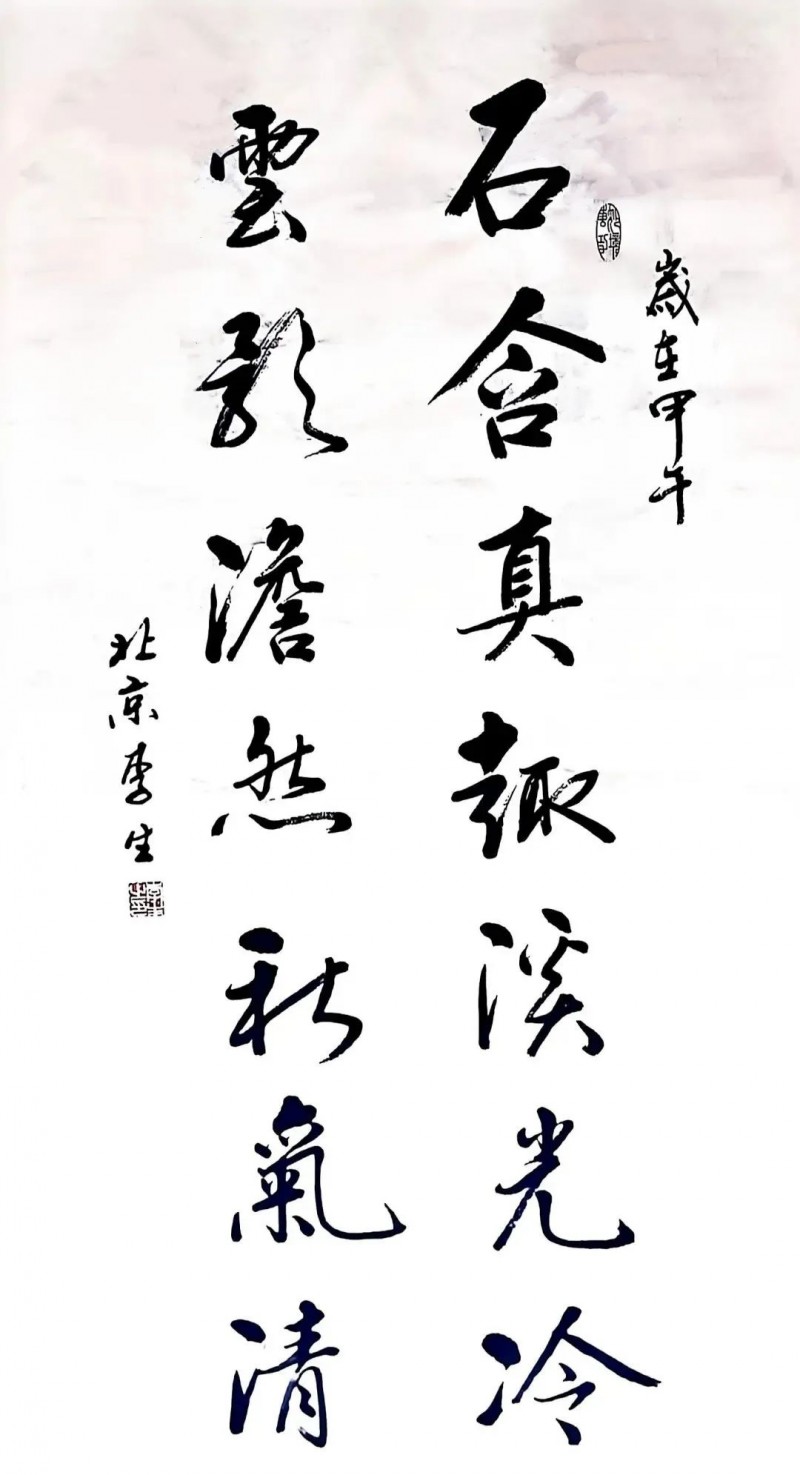 歲在甲午
石含真趣溪光冷
雲影澹然秋氣清
北京李生